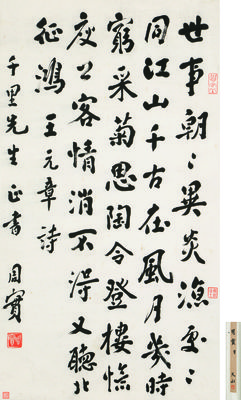 世事朝〻異炎涼處〻
同江山千古在風月幾時
窮采菊思陶令登樓憶
庾公客情消不得又聽北
征鴻 王元章詩
千里先生正書 周實